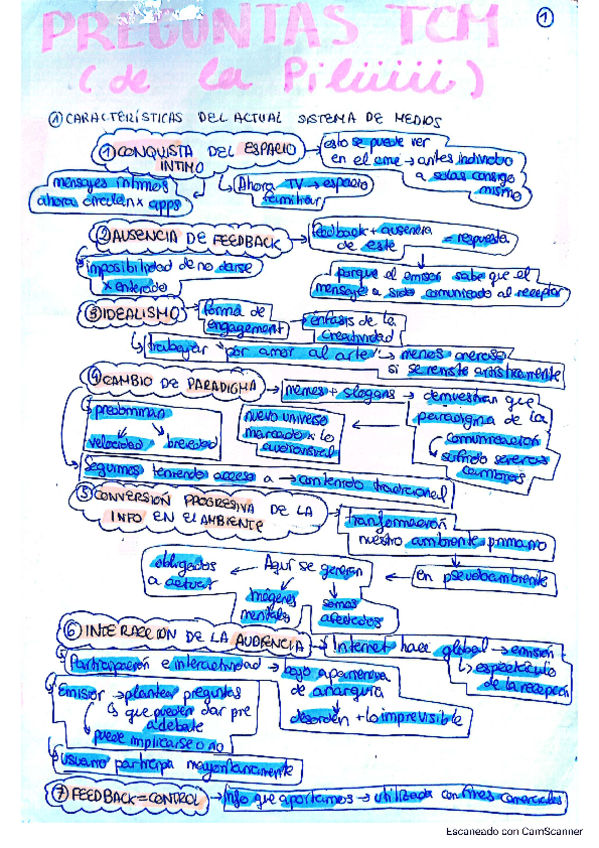 PREGUNTAS TCM
(de la Pilüüüi)
1
① CARACTERÍSTICAS DEL ACTUAL SISTEMA DE MEDIOS
① CONQUISTA DEL ESPACIO ÍNTIMO → esto se puede ver
en el cine → antes individuo
a solas consigo
mismo
mensajes íntimos
ahora circulan x apps
Ahora TV → espacio
familiar
② AUSENCIA DE FEEDBACK → feedback + ausencia
de este = respuesta
imposibilidad de no darse
x enterado
porque el emisor sabe que el
mensaje a sido comunicado al receptor
③ IDEALISMO → forma de
engagement → énfasis de la
creatividad
↳ trabajar "por amor al arte" → menos oneroso
si se reviste artísticamente
④ CAMBIO DE PARADIGMA → memes + slogans → demuestran que
paradigma de la
comunicación
sufrido severos
cambios
nuevo universo
marcado x lo
audiovisual
predominan
velocidad brevedad
Seguimos teniendo acceso a → contenido tradicional
⑤ CONVERSIÓN PROGRESIVA DE LA
INFO EN EL AMBIENTE → transformación
nuestro ambiente primario
en pseudoambiente
← Aquí se generan
obligados
a actuar
imágenes
mentales
somos
afectados
⑥ INTERACCIÓN DE LA AUDIENCIA → Internet hace global → emisión
↳ espectáculo
de la recepción
Participación e interactividad → bajo apariencia
de anarquía
desorden + lo imprevisible
Emisor → plantea preguntas
↳ que pueden dar pie
a debate
puede implicarse o no
usuario participa mayoritariamente
⑦ FEEDBACK = CONTROL → info que aportamos → utilizada con fines comerciales
Escaneado con CamScanner